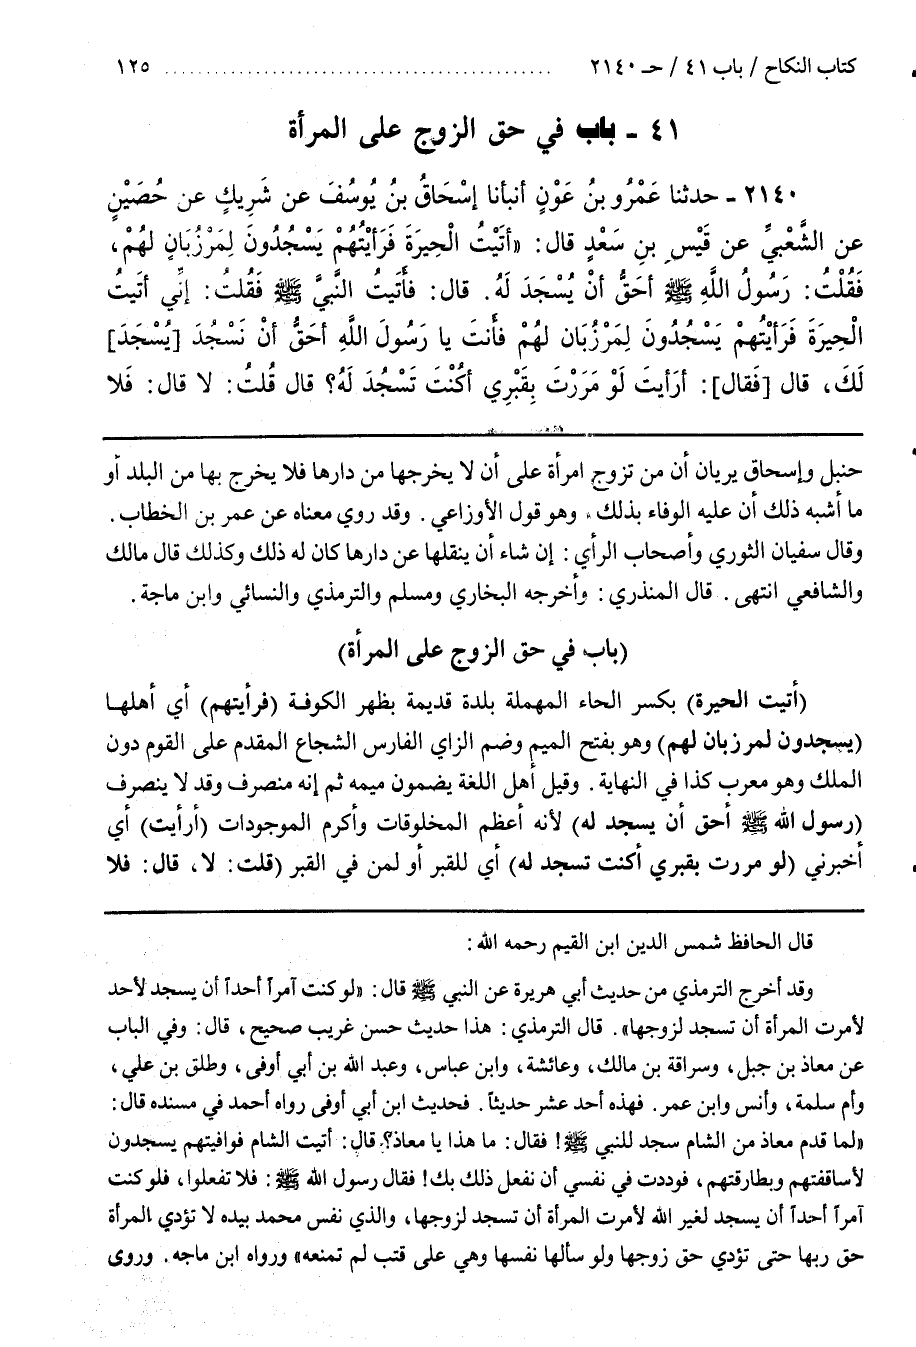 كتاب النكاح / باب ٤١ / حـ ٢١٤٠ ............................................ ١٢٥
٤١ - باب في حق الزوج على المرأة
٢١٤٠ - حدثنا عَمْرُو بنُ عَوْنٍ أنبأنا إسْحَاقُ بنُ يُوسُفَ عن شَرِيكٍ عن حُصَيْنٍ
عن الشَّعْبيِّ عن قَيْسِ بنِ سَعْدٍ قال: «أتَيْتُ الْحِيرَةَ فَرَأيْتُهُمْ يَسْجُدُونَ لِمَرْزُبَانٍ لهُمْ،
فَقُلْتُ: رَسُولُ اللَّهِ ﷺ أحَقُّ أنْ يُسْجَدَ لَهُ. قال: فأَتَيتُ النَّبيَّ ﷺ فَقُلتُ: إنِّي أتَيتُ
الْحِيرَةَ فَرَأيْتُهمْ يَسْجُدُونَ لِمَرْزُبَان لهُمْ فأَنتَ يا رَسُولَ اللَّهِ أحَقُّ أنْ نَسْجُدَ [يُسْجَدَ]
لَكَ، قال [فَقال]: أرَأيتَ لَوْ مَرَرْتَ بِقَبْرِي أكُنْتَ تَسْجُد لَهُ؟ قال قُلتُ: لا قال: فَلا
حنبل وإسحاق يريان أن من تزوج امرأة على أن لا يخرجها من دارها فلا يخرج بها من البلد أو
ما أشبه ذلك أن عليه الوفاء بذلك، وهو قول الأوزاعي. وقد روي معناه عن عمر بن الخطاب.
وقال سفيان الثوري وأصحاب الرأي: إن شاء أن ينقلها عن دارها كان له ذلك وكذلك قال مالك
والشافعي انتهى. قال المنذري: وأخرجه البخاري ومسلم والترمذي والنسائي وابن ماجة.
(باب في حق الزوج على المرأة)
(أتيت الحيرة) بكسر الحاء المهملة بلدة قديمة بظهر الكوفة (فرأيتهم) أي أهلها
(يسجدون لمرزبان لهم) وهو بفتح الميم وضم الزاي الفارس الشجاع المقدم على القوم دون
الملك وهو معرب كذا في النهاية. وقيل أهل اللغة يضمون ميمه ثم إنه منصرف وقد لا ينصرف
(رسول الله ﷺ أحق أن يسجد له) لأنه أعظم المخلوقات وأكرم الموجودات (أرأيت) أي
أخبرني (لو مررت بقبري أكنت تسجد له) أي للقبر أو لمن في القبر (قلت: لا، قال: فلا
قال الحافظ شمس الدين ابن القيم رحمه الله:
وقد أخرج الترمذي من حديث أبي هريرة عن النبي ﷺ قال: «لو كنت آمراً أحداً أن يسجد لأحد
لأمرت المرأة أن تسجد لزوجها». قال الترمذي: هذا حديث حسن غريب صحيح، قال: وفي الباب
عن معاذ بن جبل، وسراقة بن مالك، وعائشة، وابن عباس، وعبد الله بن أبي أوفى، وطلق بن علي،
وأم سلمة، وأنس وابن عمر. فهذه أحد عشر حديثاً. فحديث ابن أبي أوفى رواه أحمد في مسنده قال:
«لما قدم معاذ من الشام سجد للنبي ﷺ! فقال: ما هذا يا معاذ؟ قال: أتيت الشام فوافيتهم يسجدون
لأساقفتهم وبطارقتهم، فوددت في نفسي أن نفعل ذلك بك! فقال رسول الله ﷺ: فلا تفعلوا، فلو كنت
آمراً أحداً أن يسجد لغير الله لأمرت المرأة أن تسجد لزوجها، والذي نفس محمد بيده لا تؤدي المرأة
حق ربها حتى تؤدي حق زوجها ولو سألها نفسها وهي على قتب لم تمنعه» ورواه ابن ماجه. وروى